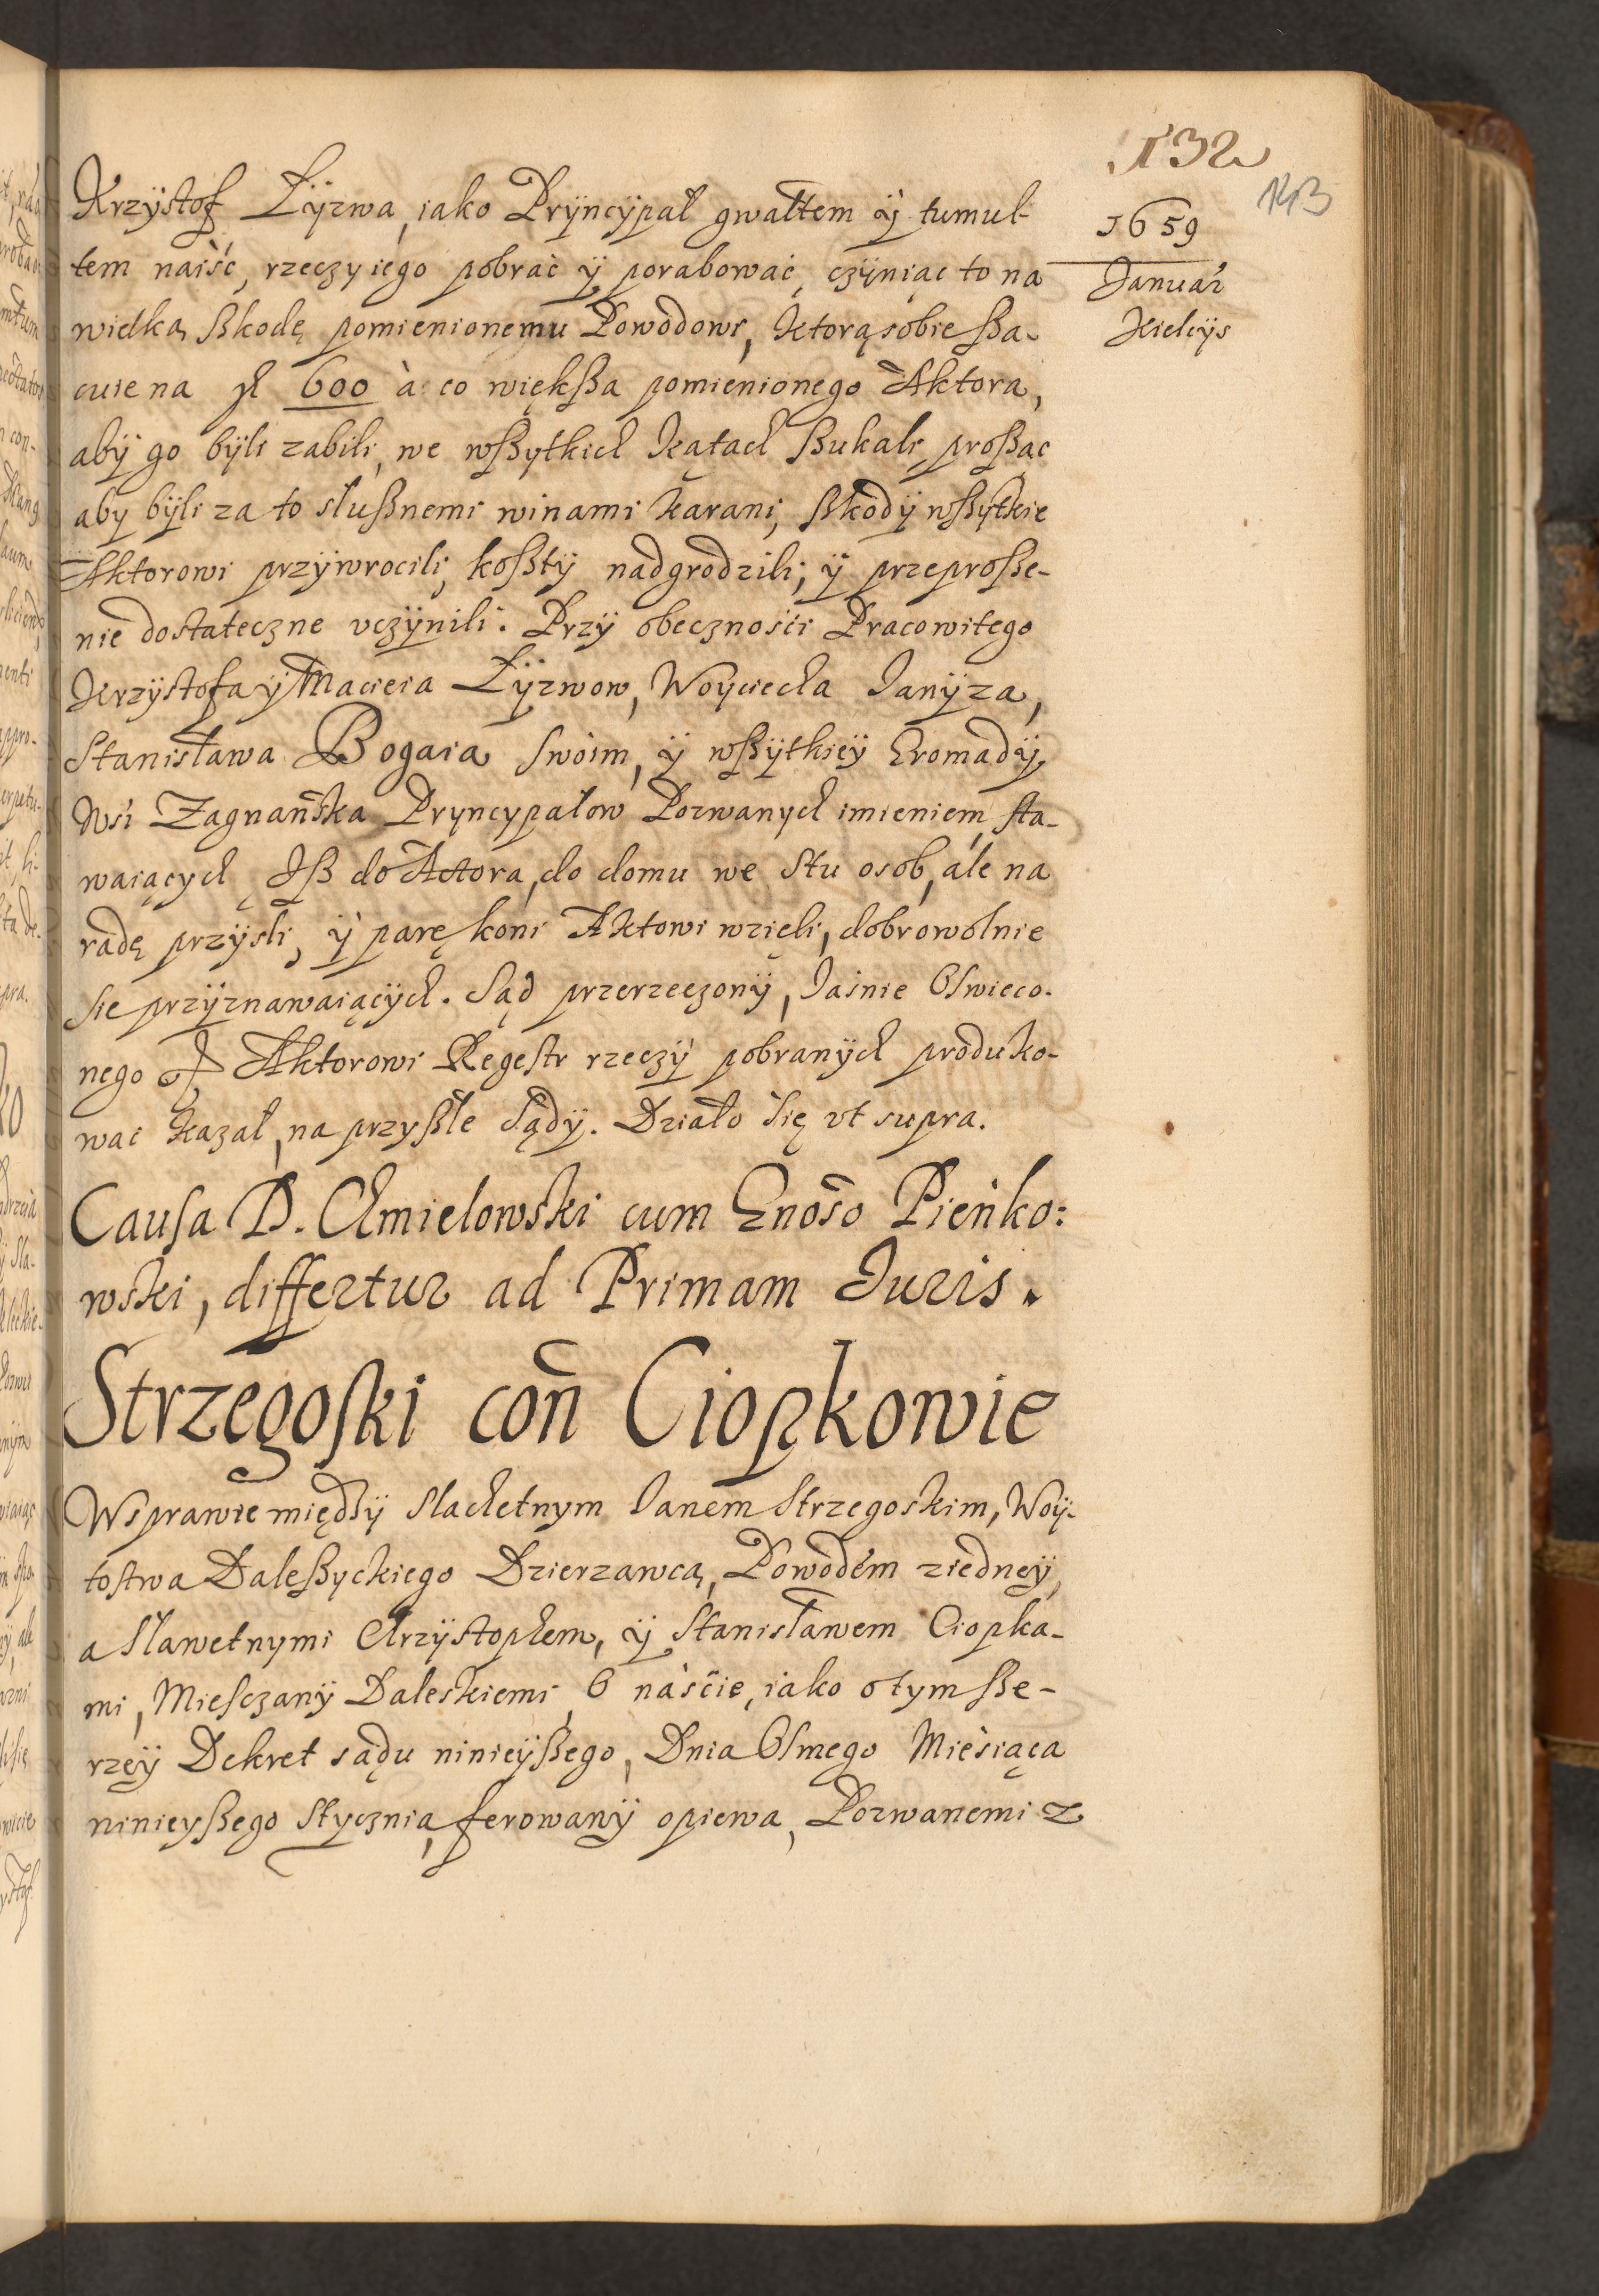 132
143
1659
Januar
Kielcÿs
Krzÿstof Łÿzwa, iako Prÿncÿpał gwałtem ÿ tumul-
tem naiść, rzeczy iego pobrać ÿ porabować, czÿniąc to na
wielką ßkodę pomienionemu Powodowi, ktorą sobie ßa-
cuie na zł 600 à co więkßa pomienionego Aktora,
abÿ go bÿli zabili, we wßytkich kątach ßukali, proßąc
aby bÿli za to słußnemi winami karani, ßkodÿ wßÿtkie
Aktorowi przÿwrocili, koßtÿ nadgrodzili, ÿ przeproße-
nie dostateczne vczÿnili. Przÿ obecznośći Pracowitego
Krzÿstofa ÿ Macieia Łÿzwow, Woÿciecha Janÿza,
Stanisława Bogaia swoim, ÿ wßÿtkieÿ Gromadÿ
Wsi Zagnańska Pryncypałow Pozwanych imieniem, sta-
waiących Iß do Actora, do domu we stu osob, ále na
radę przÿsli, ÿ parę koni Aktowi wzięli, dobrowolnie
sie przÿznawaiącÿch. Sąd przerzeczonÿ, Jaśnie Oswieco-
nego Aktorowi Regestr rzeczÿ pobranÿch produko-
wac kazał, na przyßłe Sądÿ. Działo się vt supra.
Causa D. Chmielowski cum Gnoso Pieńko:
wski, differtur ad Primam Juris.
Strzegoski con Ciopkowie
W sprawie międzÿ Slachetnym Janem Strzegoskim, Woÿ-
tostwa Daleßyckiego Dzierzawcą, Powodem z iedneÿ,
a Sławetnymi Chrzÿstophem, ÿ Stanisławem Ciopka-
mi, Miesczanÿ Daleskiemi, O náście, iako o tym ße-
rzeÿ Dekret sądu ninieÿßego, Dnia Osmego Miesiąca
ninieyßego Stycznia, ferowanÿ opiewa, Pozwanemi z